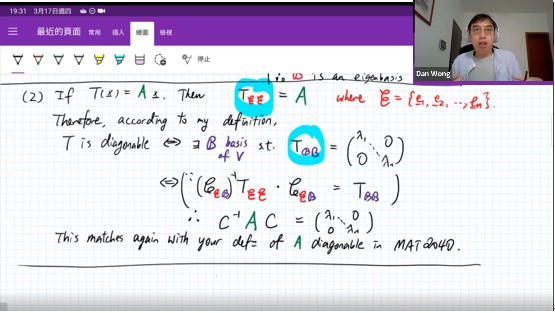 19:31 3月17日週四
最近的頁面 常用 插入 繪圖 檢視
停止
Dan Wong
is an eigenbasis
(2) If T(x) = A x. Then T_EE = A where E = {e1, e2, ..., en}.
Therefore, according to my definition,
T is diagonable ⇔ ∃ B basis of V s.t. T_BB = (λ1 0 ⋱ 0 λn)
⇔ (∵ (C_EB)^-1 T_EE · C_EB = T_BB)
∴ C^-1 A C = (λ1 0 ⋱ 0 λn)
This matches again with your def= of A diagonable in MAT2040.